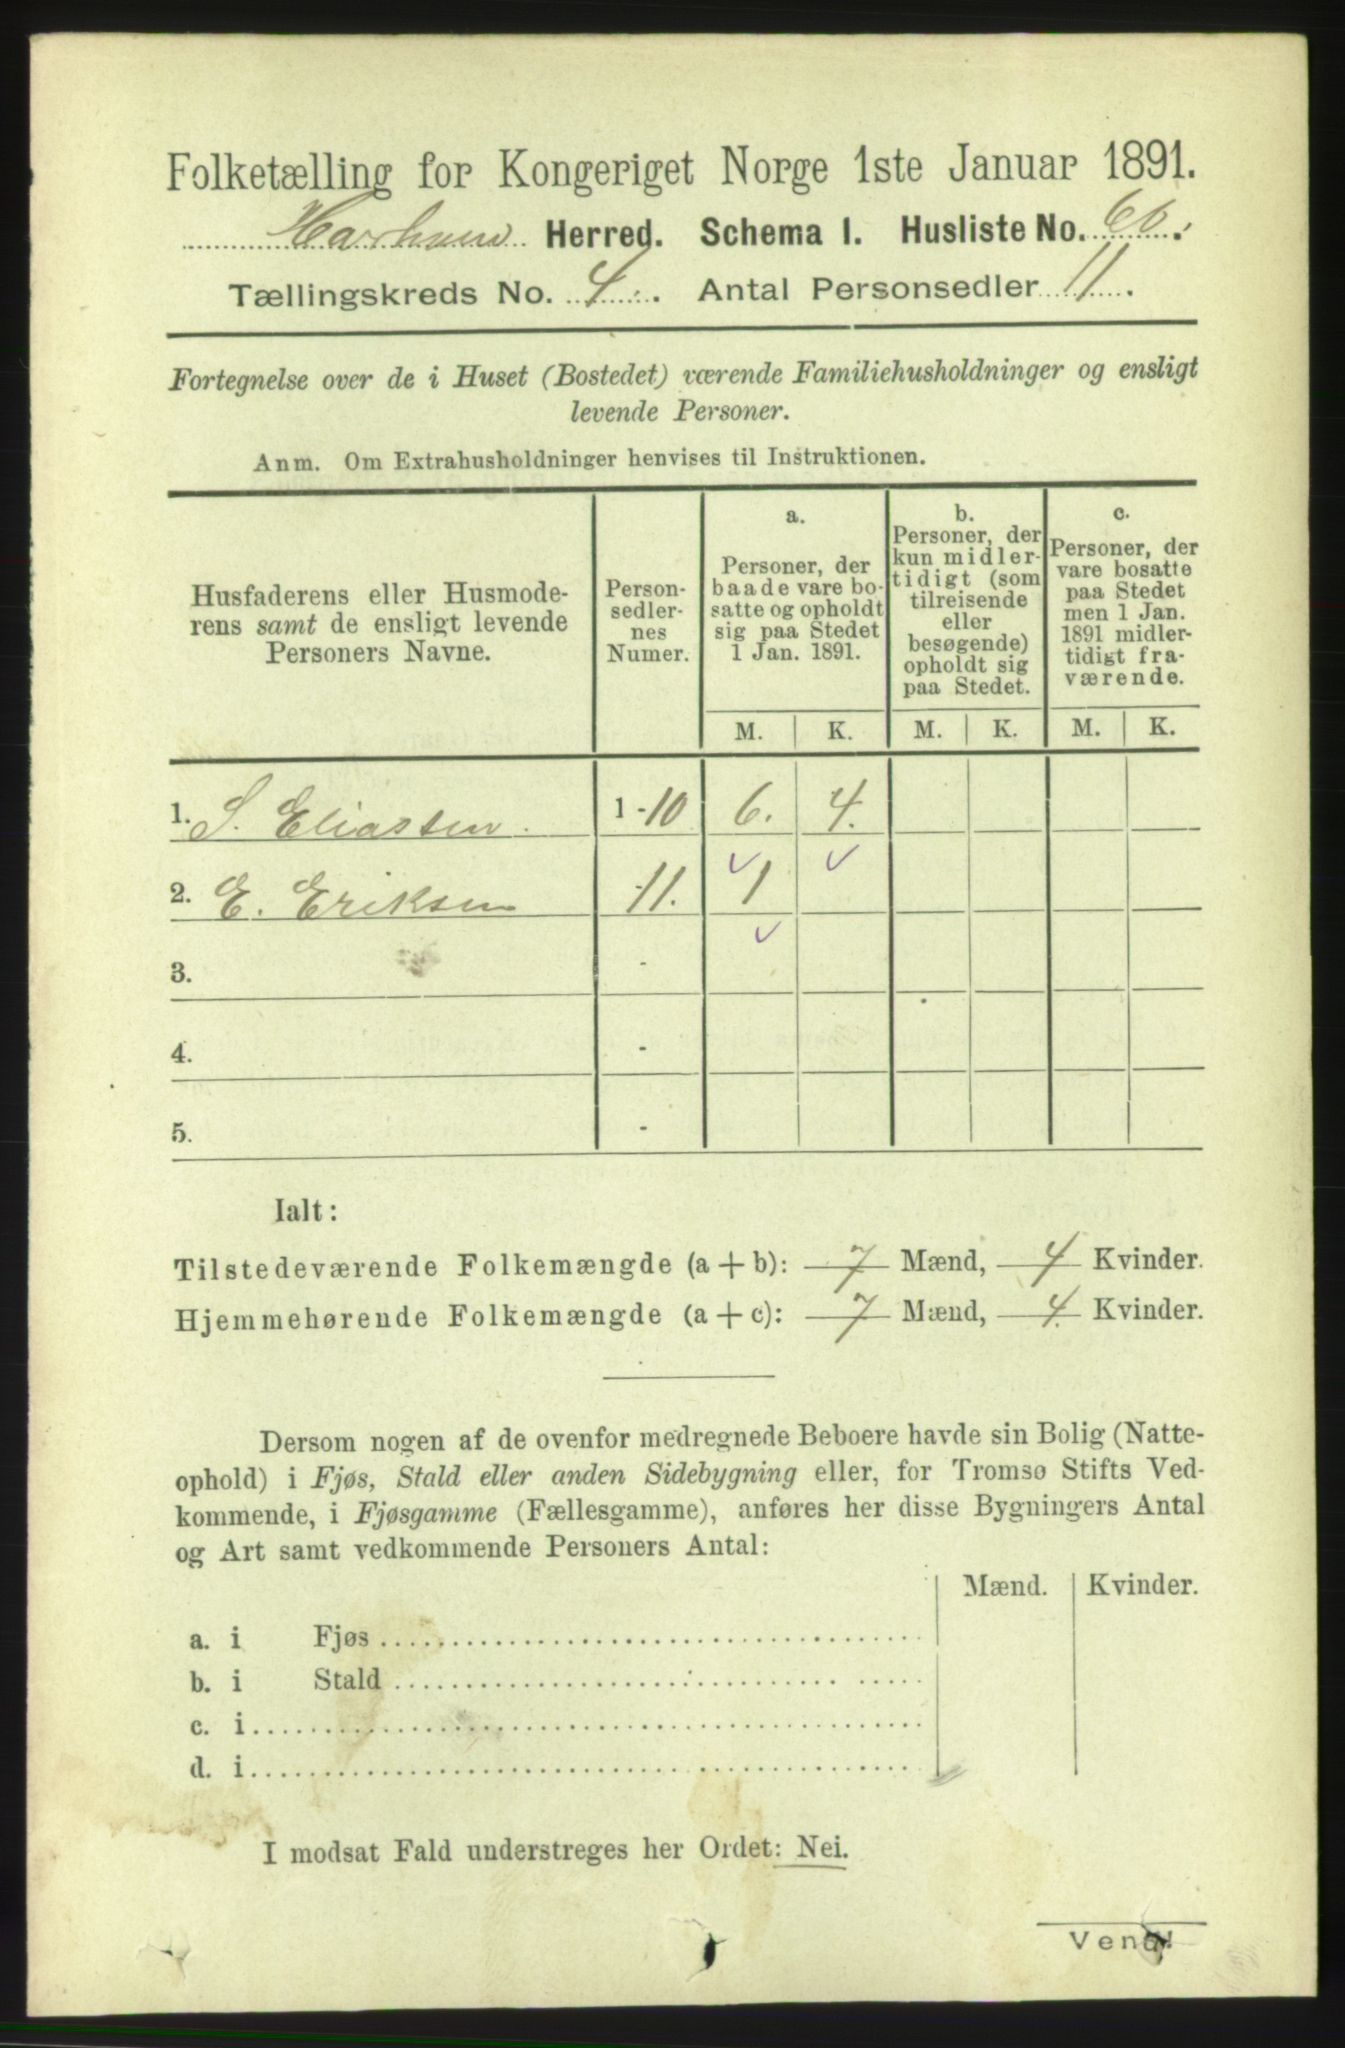 Folketælling for Kongeriget Norge 1ste Januar 1891.
Harham Herred. Schema 1. Husliste No. 66.
Tællingskreds No. 4. Antal Personsedler 11.
Fortegnelse over de i Huset (Bostedet) værende Familiehusholdninger og ensligt
levende Personer.
Anm. Om Extrahusholdninger henvises til Instruktionen.
Husfaderens eller Husmode-
rens samt de ensligt levende
Personers Navne.
Person-
sedler-
nes
Numer.
a.
Personer, der
baade vare bo-
satte og opholdt
sig paa Stedet
1 Jan. 1891.
b.
Personer, der
kun midler-
tidigt (som
tilreisende
eller
besøgende)
opholdt sig
paa Stedet.
c.
Personer, der
vare bosatte
paa Stedet
men 1 Jan.
1891 midler-
tidigt fra-
værende.
M. K. M. K. M. K.
1. S. Eliassen. 1-10 6. 4.
2. E. Eriksen -11. 1
3. -
4. -
5. -
Ialt:
Tilstedeværende Folkemængde (a + b): 7 Mænd, 4 Kvinder.
Hjemmehørende Folkemængde (a + c): 7 Mænd, 4. Kvinder.
Dersom nogen af de ovenfor medregnede Beboere havde sin Bolig (Natte-
ophold) i Fjøs, Stald eller anden Sidebygning eller, for Tromsø Stifts Ved-
kommende, i Fjøsgamme (Fællesgamme), anføres her disse Bygningers Antal
og Art samt vedkommende Personers Antal:
Mænd. Kvinder.
a. i Fjøs
b. i Stald
c. i
d. i
I modsat Fald understreges her Ordet: Nei.
Vend!